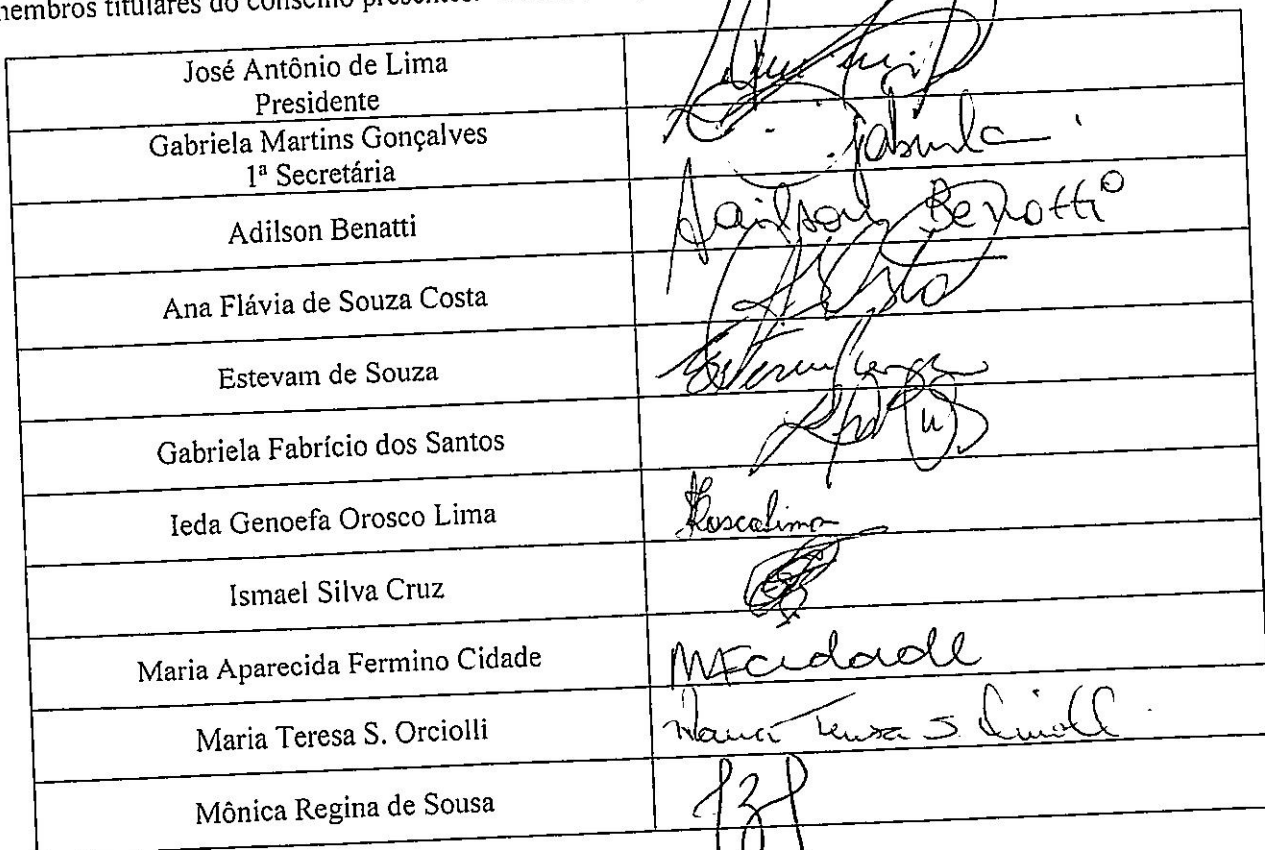 membros titulares do conselho presentes.
José Antônio de Lima
Presidente
Gabriela Martins Gonçalves
1ª Secretária
Gabriela
Adilson Benatti
Adilson Benatti
Ana Flávia de Souza Costa
Estevam de Souza
Gabriela Fabrício dos Santos
Ieda Genoefa Orosco Lima
Ismael Silva Cruz
Maria Aparecida Fermino Cidade
MFcidade
Maria Teresa S. Orciolli
Maria Teresa S. Orciolli
Mônica Regina de Sousa